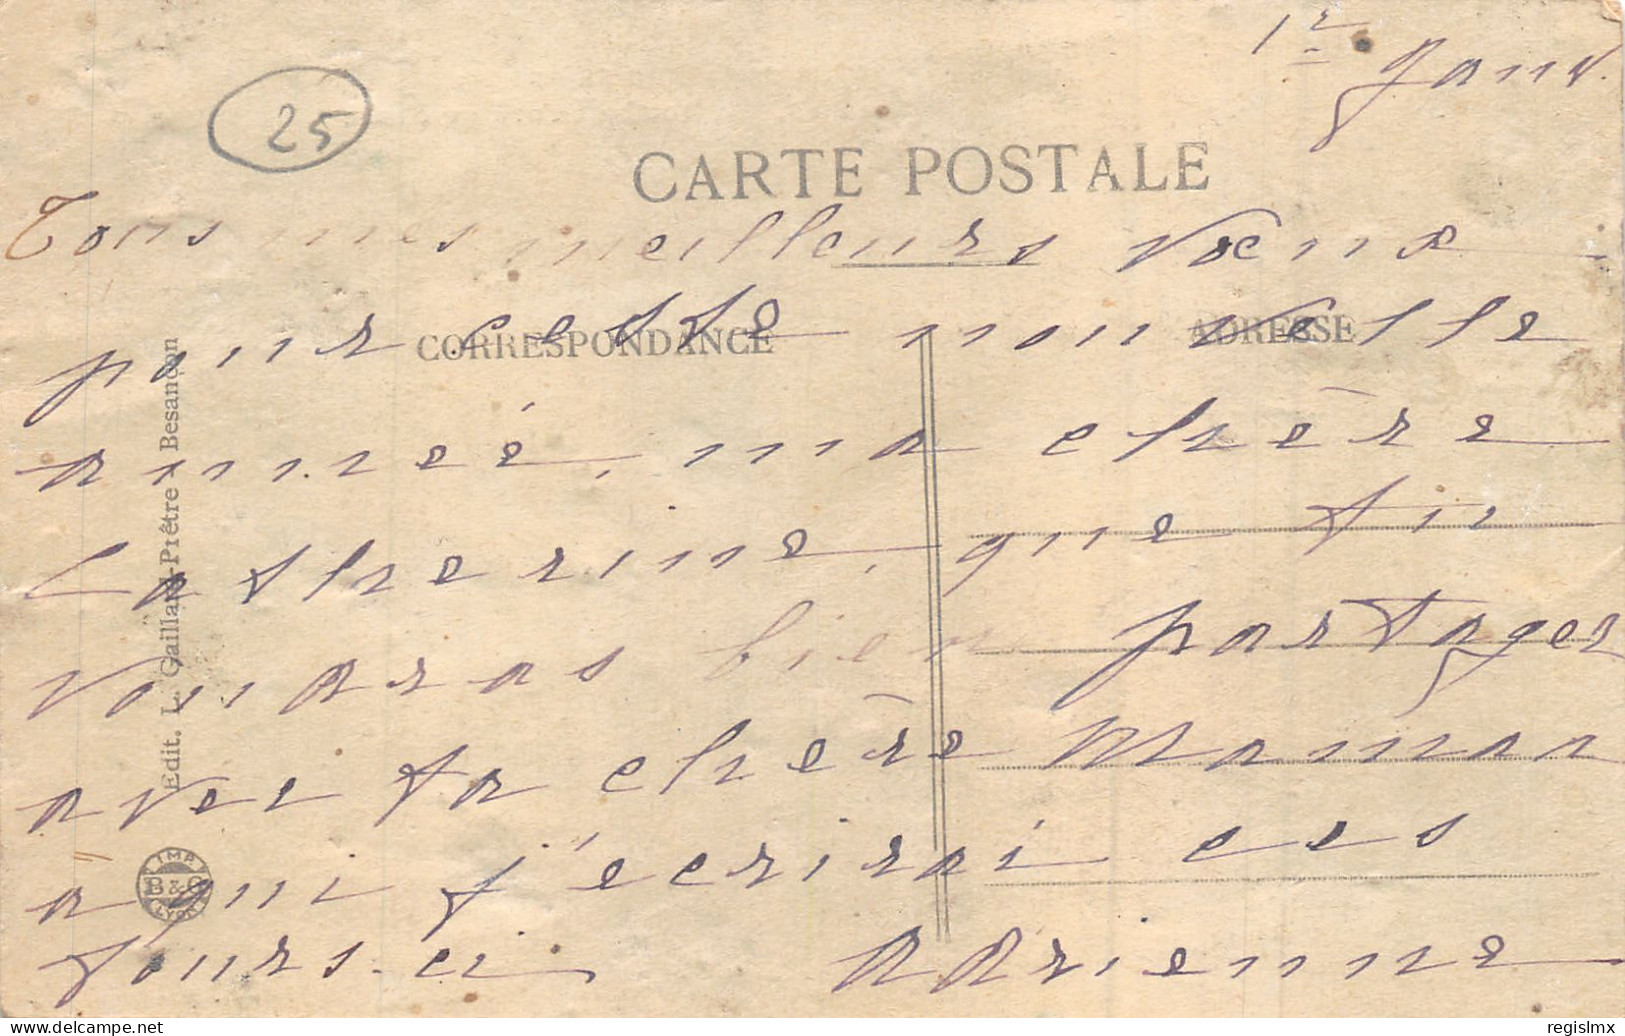 1er Janv.
25
CARTE POSTALE
Tous mes meilleurs vœux
CORRESPONDANCE
ADRESSE
pour cette nouvelle
année, ma chère
Catherine, que tu
voudras bien partager
avec ta chère Maman
à qui j'écrirai ces
jours-ci Adrienne
Edit. L. Gaillard-Prêtre - Besançon
IMP.
B & G
LYON
regislmx
www.delcampe.net